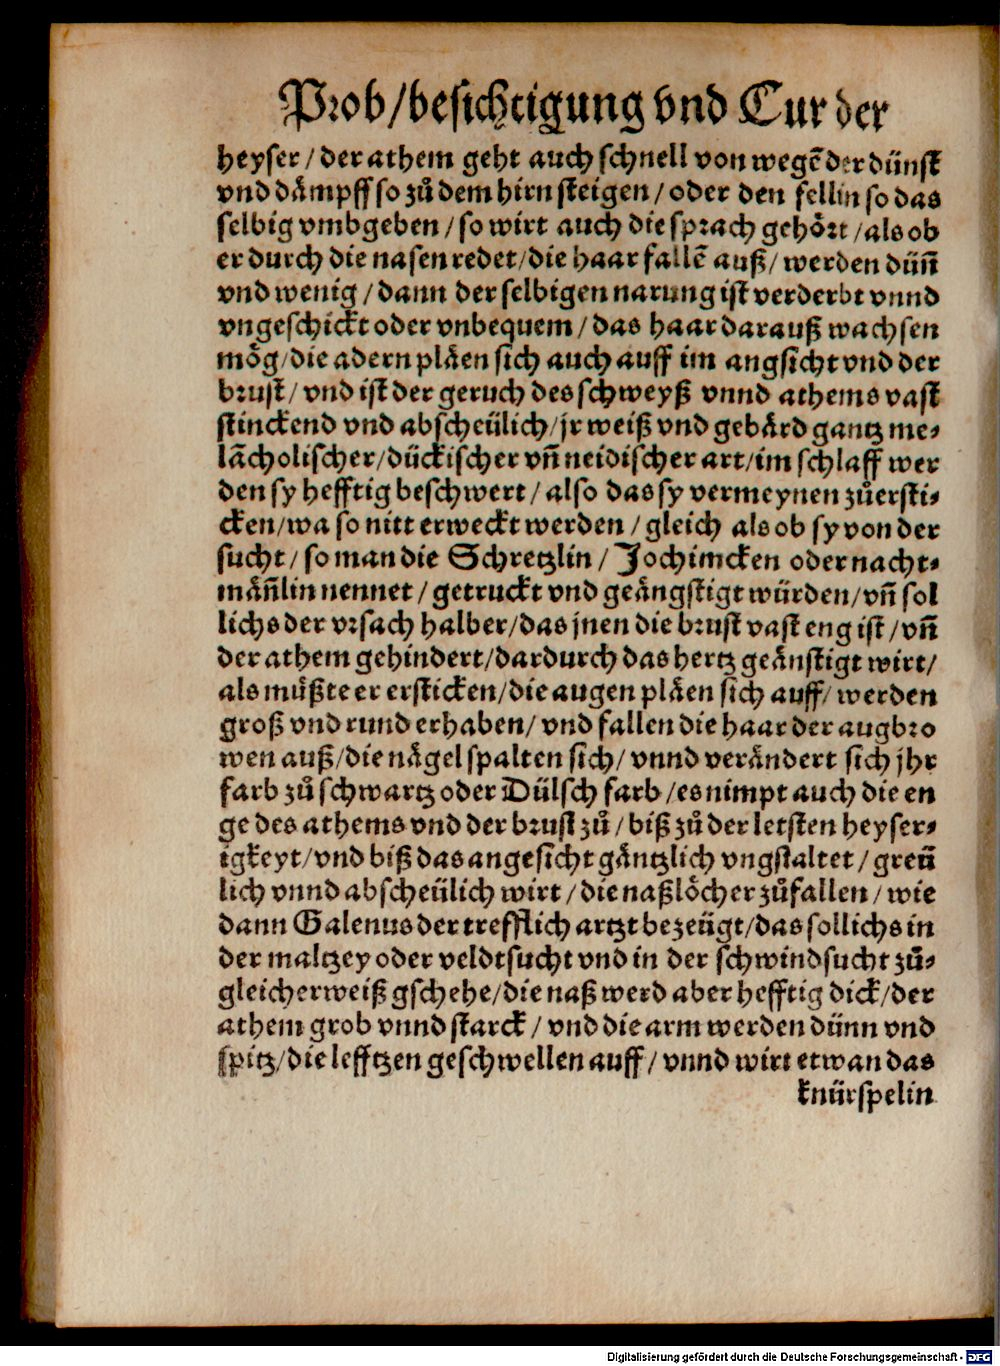 Prob/besichtigung vnd Cur der
heyser/der athem geht auch schnell von wegē der dünst
vnd dämpff so zů dem hirn steigen/oder den fellin so das
selbig vmbgeben/so wirt auch die sprach gehört/als ob
er durch die nasen redet/die haar fallē auß/werden dün̄
vnd wenig/dann der selbigen narung ist verderbt vnnd
vngeschickt oder vnbequem/das haar darauß wachsen
mög/die adern pläen sich auch auff im angsicht vnd der
brust/vnd ist der geruch des schweyß vnnd athems vast
stinckend vnd abscheülich/jr weiß vnd gebärd gantz me⸗
lācholischer/dückischer vn̄ neidischer art/im schlaff wer
den sy hefftig beschwert/also das sy vermeynen zůersti⸗
cken/wa so nitt erweckt werden/gleich als ob sy von der
sucht/so man die Schretzlin/Jochimcken oder nacht⸗
män̄lin nennet/getruckt vnd geängstigt würden/vn̄ sol
lichs der vrsach halber/das jnen die brust vast eng ist/vn̄
der athem gehindert/dardurch das hertz geänstigt wirt/
als müßte er ersticken/die augen pläen sich auff/werden
groß vnd rund erhaben/vnd fallen die haar der augbro
wen auß/die nägel spalten sich/vnnd verändert sich jhr
farb zů schwartz oder Dülsch farb/es nimpt auch die en
ge des athems vnd der brust zů/biß zů der letsten heyser⸗
igkeyt/vnd biß das angesicht gäntzlich vngstaltet/greü
lich vnnd abscheülich wirt/die naßlöcher zůfallen/wie
dann Galenus der trefflich artzt bezeügt/das sollichs in
der maltzey oder veldtsucht vnd in der schwindsucht zů⸗
gleicherweiß gschehe/die naß werd aber hefftig dick/der
athem grob vnnd starck/vnd die arm werden dünn vnd
spitz/die lefftzen geschwellen auff/vnnd wirt etwan das
knürspelin
Digitalisierung gefördert durch die Deutsche Forschungsgemeinschaft - DFG